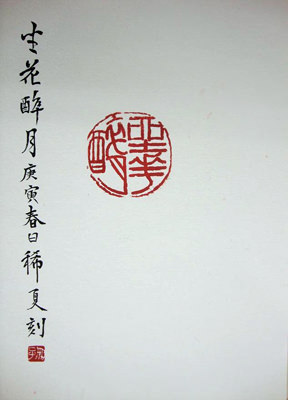 坐花醉月庚寅春日稀夏刻